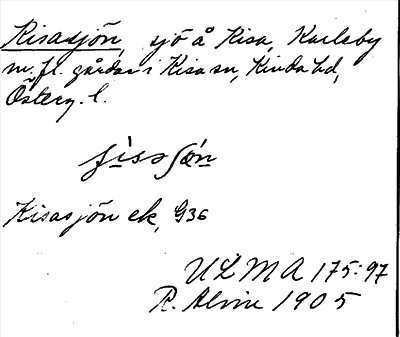 Kisasjön, sjö å Kisa, Karleby
m. fl. gårdar i Kisa sn, Kinda hd,
Österg. l.
Kisasjön ek, G36
ULMA 175:97
R. Alvin 1905